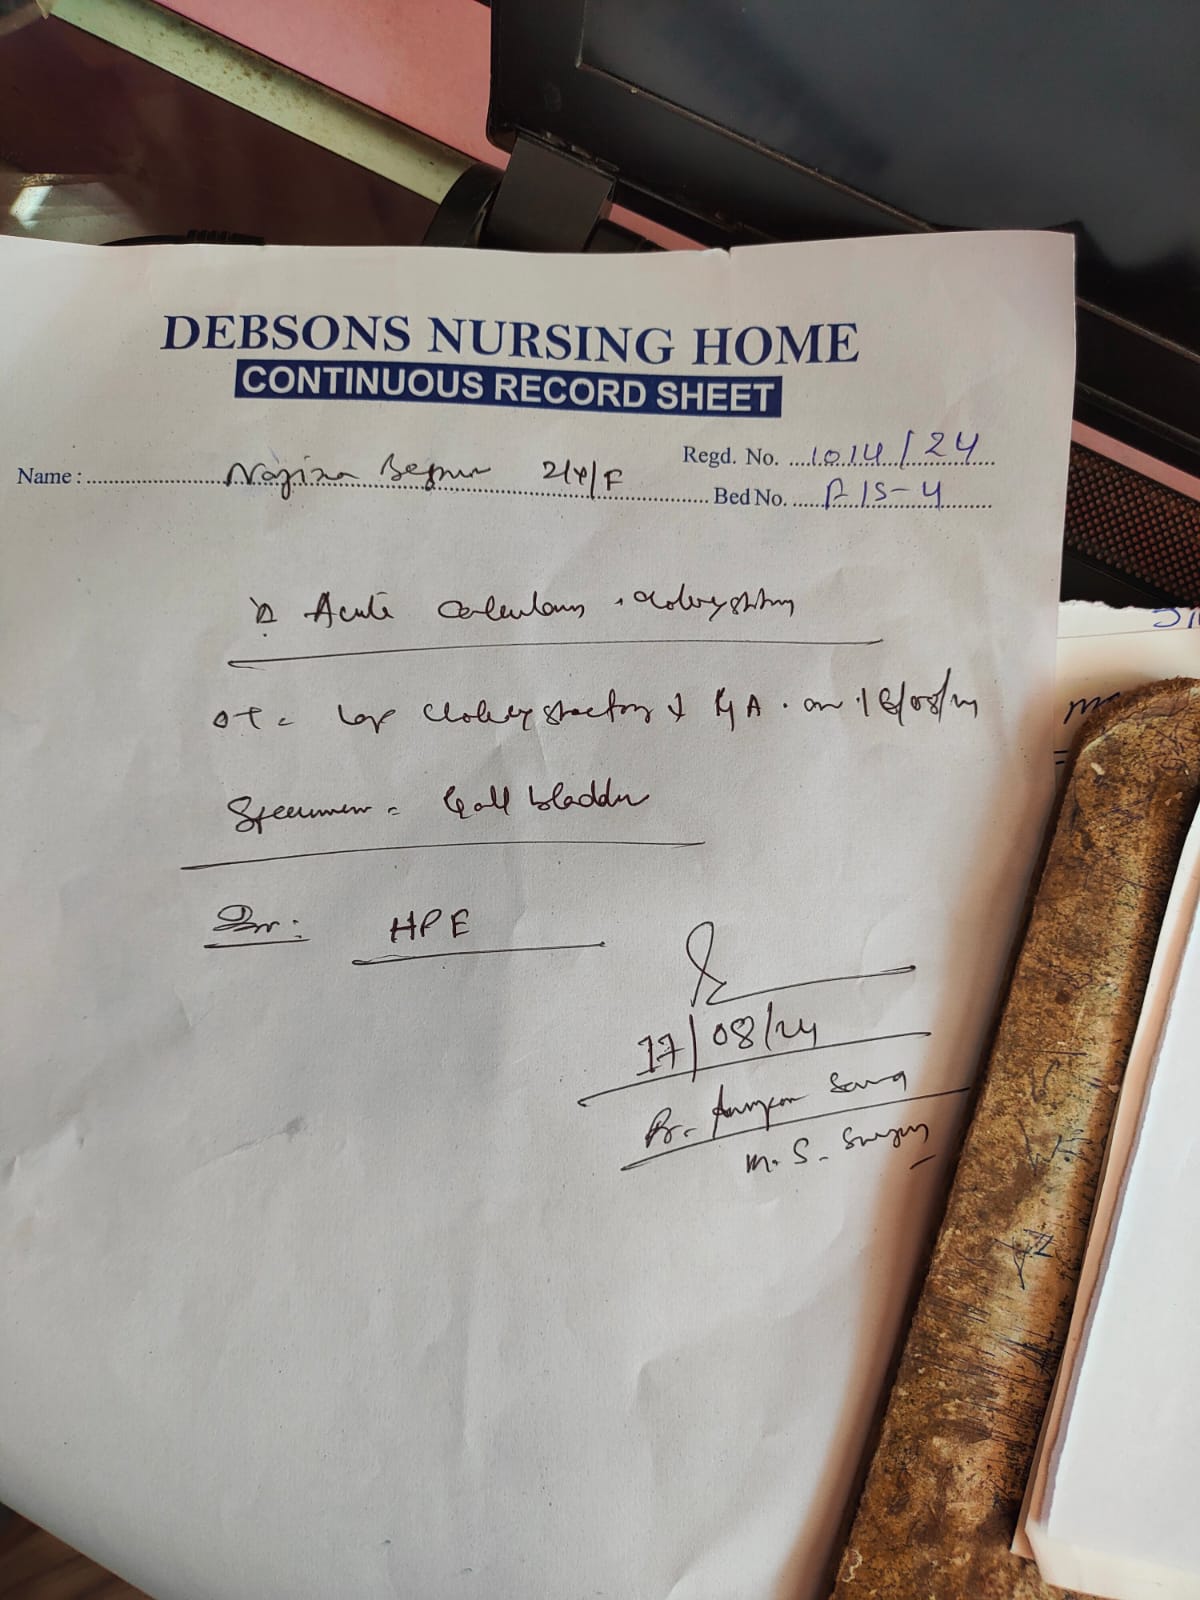 DEBSONS NURSING HOME
CONTINUOUS RECORD SHEET
Regd. No. 1014/24
Name: Begum /F
Bed No.
Acute Calculous cholecystitis
OT = Lap Cholecystectomy GA. on 16/08/24
Specimen = Gall bladder
HPE
17/08/24
Dr.
M.S. Surgery